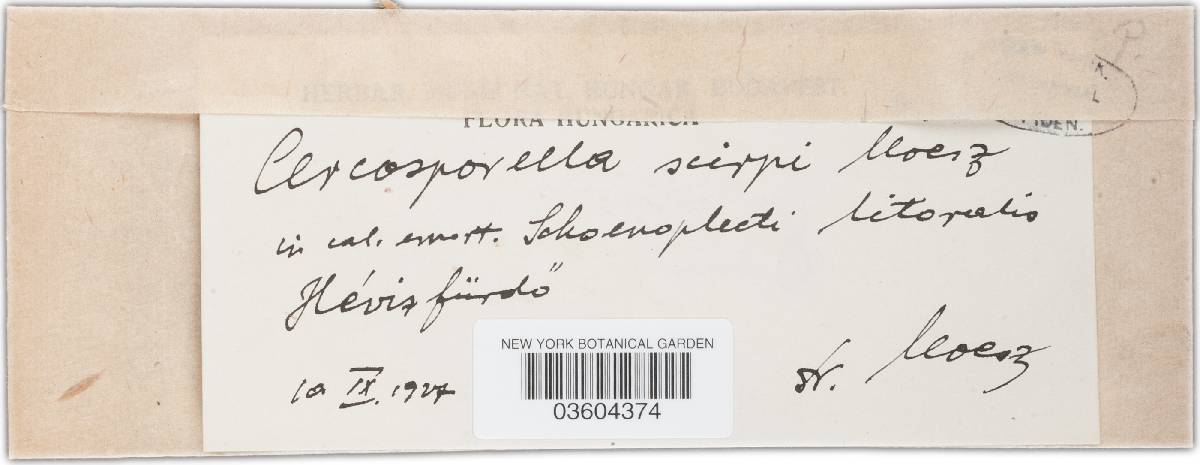 HERBAR. HUNGAR. BUDAPEST.
FLORA HUNGARICA
Cercosporella scirpi Moesz
in cal. emort. Schoenoplecti litoralis
Hévizfürdő
IX. 1927
Dr. Moesz
NEW YORK BOTANICAL GARDEN
03604374